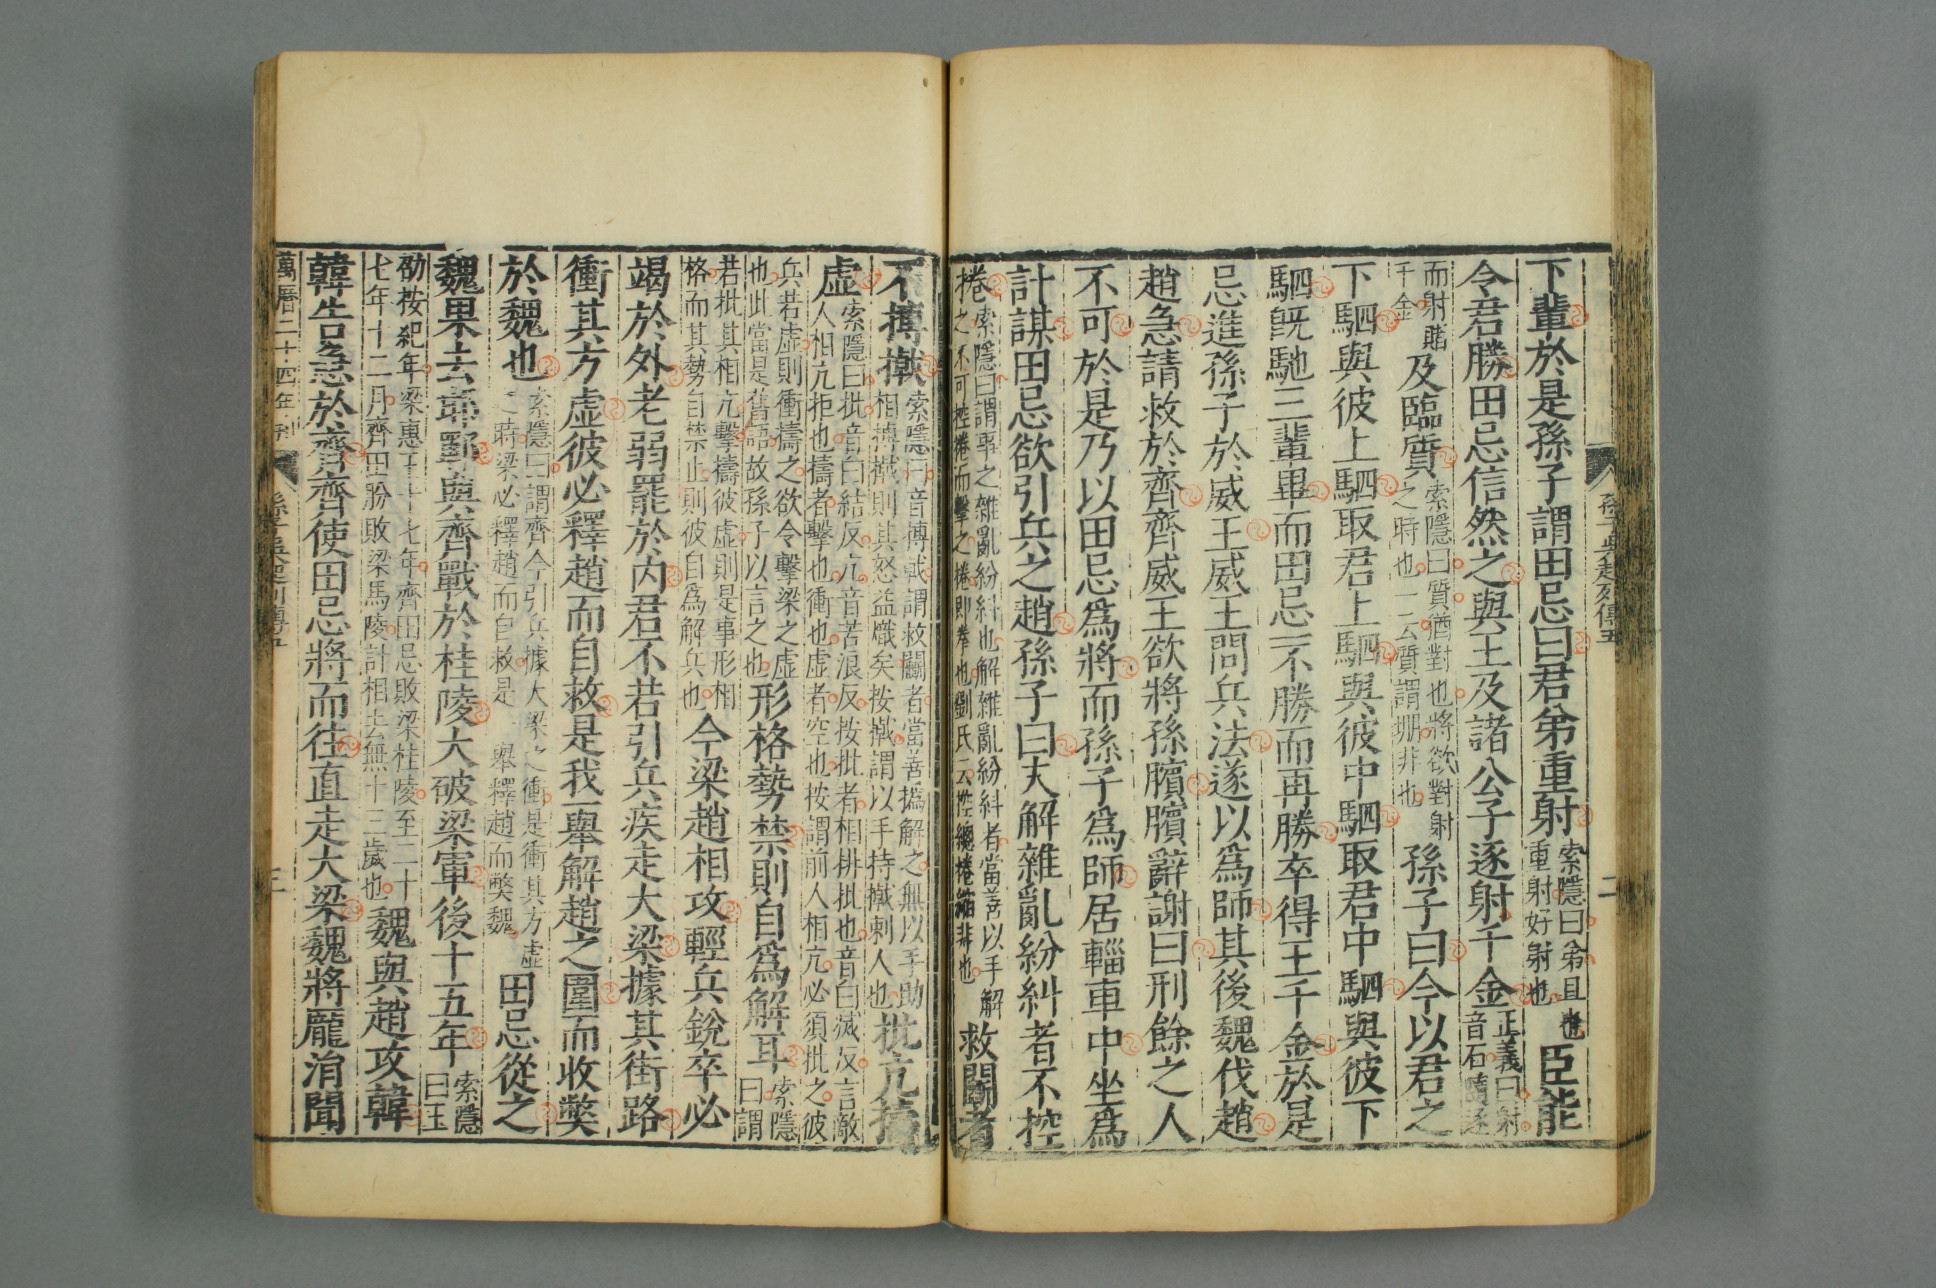 孫子吳起列傳五
二
下輩於是孫子謂田忌曰君弟重射索隱曰弟且也重射好射也臣能
令君勝田忌信然之與王及諸公子逐射千金正義曰射音石隨逐
而射賭千金及臨質索隱曰質猶對也將欲對射之時也一云質謂堋非也孫子曰今以君之
下駟與彼上駟取君上駟與彼中駟取君中駟與彼下
駟旣馳三輩畢而田忌一不勝而再勝卒得王千金於是
忌進孫子於威王威王問兵法遂以爲師其後魏伐趙
趙急請救於齊齊威王欲將孫臏臏辭謝曰刑餘之人
不可於是乃以田忌爲將而孫子爲師居輜車中坐爲
計謀田忌欲引兵之趙孫子曰夫解雜亂紛糾者不控
捲索隱曰謂事之雜亂紛糾也解雜亂紛糾者當善以手解之不可控捲而擊之捲即拳也劉氏云控總捲縮非也救鬬者
不搏撠索隱曰音搏戟謂救鬭者當善撝解之無以手助相搏撠則其怒益熾矣按撠謂以手持撠刺人也批亢擣
虛索隱曰批音白結反亢音苦浪反按批者相排批也音白滅反言敵人相亢拒也擣者擊也衝也虛者空也按謂前人相亢必須批之彼
兵若虛則衝擣之欲令擊梁之虛也此當是舊語故孫子以言之也形格勢禁則自爲解耳索隱曰謂
若批其相亢擊擣彼虛則是事形相格而其勢自禁止則彼自爲解兵也今梁趙相攻輕兵銳卒必
竭於外老弱罷於內君不若引兵疾走大梁據其街路
衝其方虛彼必釋趙而自救是我一舉解趙之圍而收獘
於魏也索隱曰謂齊今引兵據大梁之衝是衝其方虛之時梁必釋趙而自救是一舉釋趙而獘魏田忌從之
魏果去邯鄲與齊戰於桂陵大破梁軍後十五年索隱曰王
劭按紀年梁惠王十七年齊田忌敗梁桂陵至二十七年十二月齊田朌敗梁馬陵計相去無十三歲也魏與趙攻韓
韓告急於齊齊使田忌將而往直走大梁魏將龐涓聞
萬曆二十四年刊
孫子吳起列傳五
三